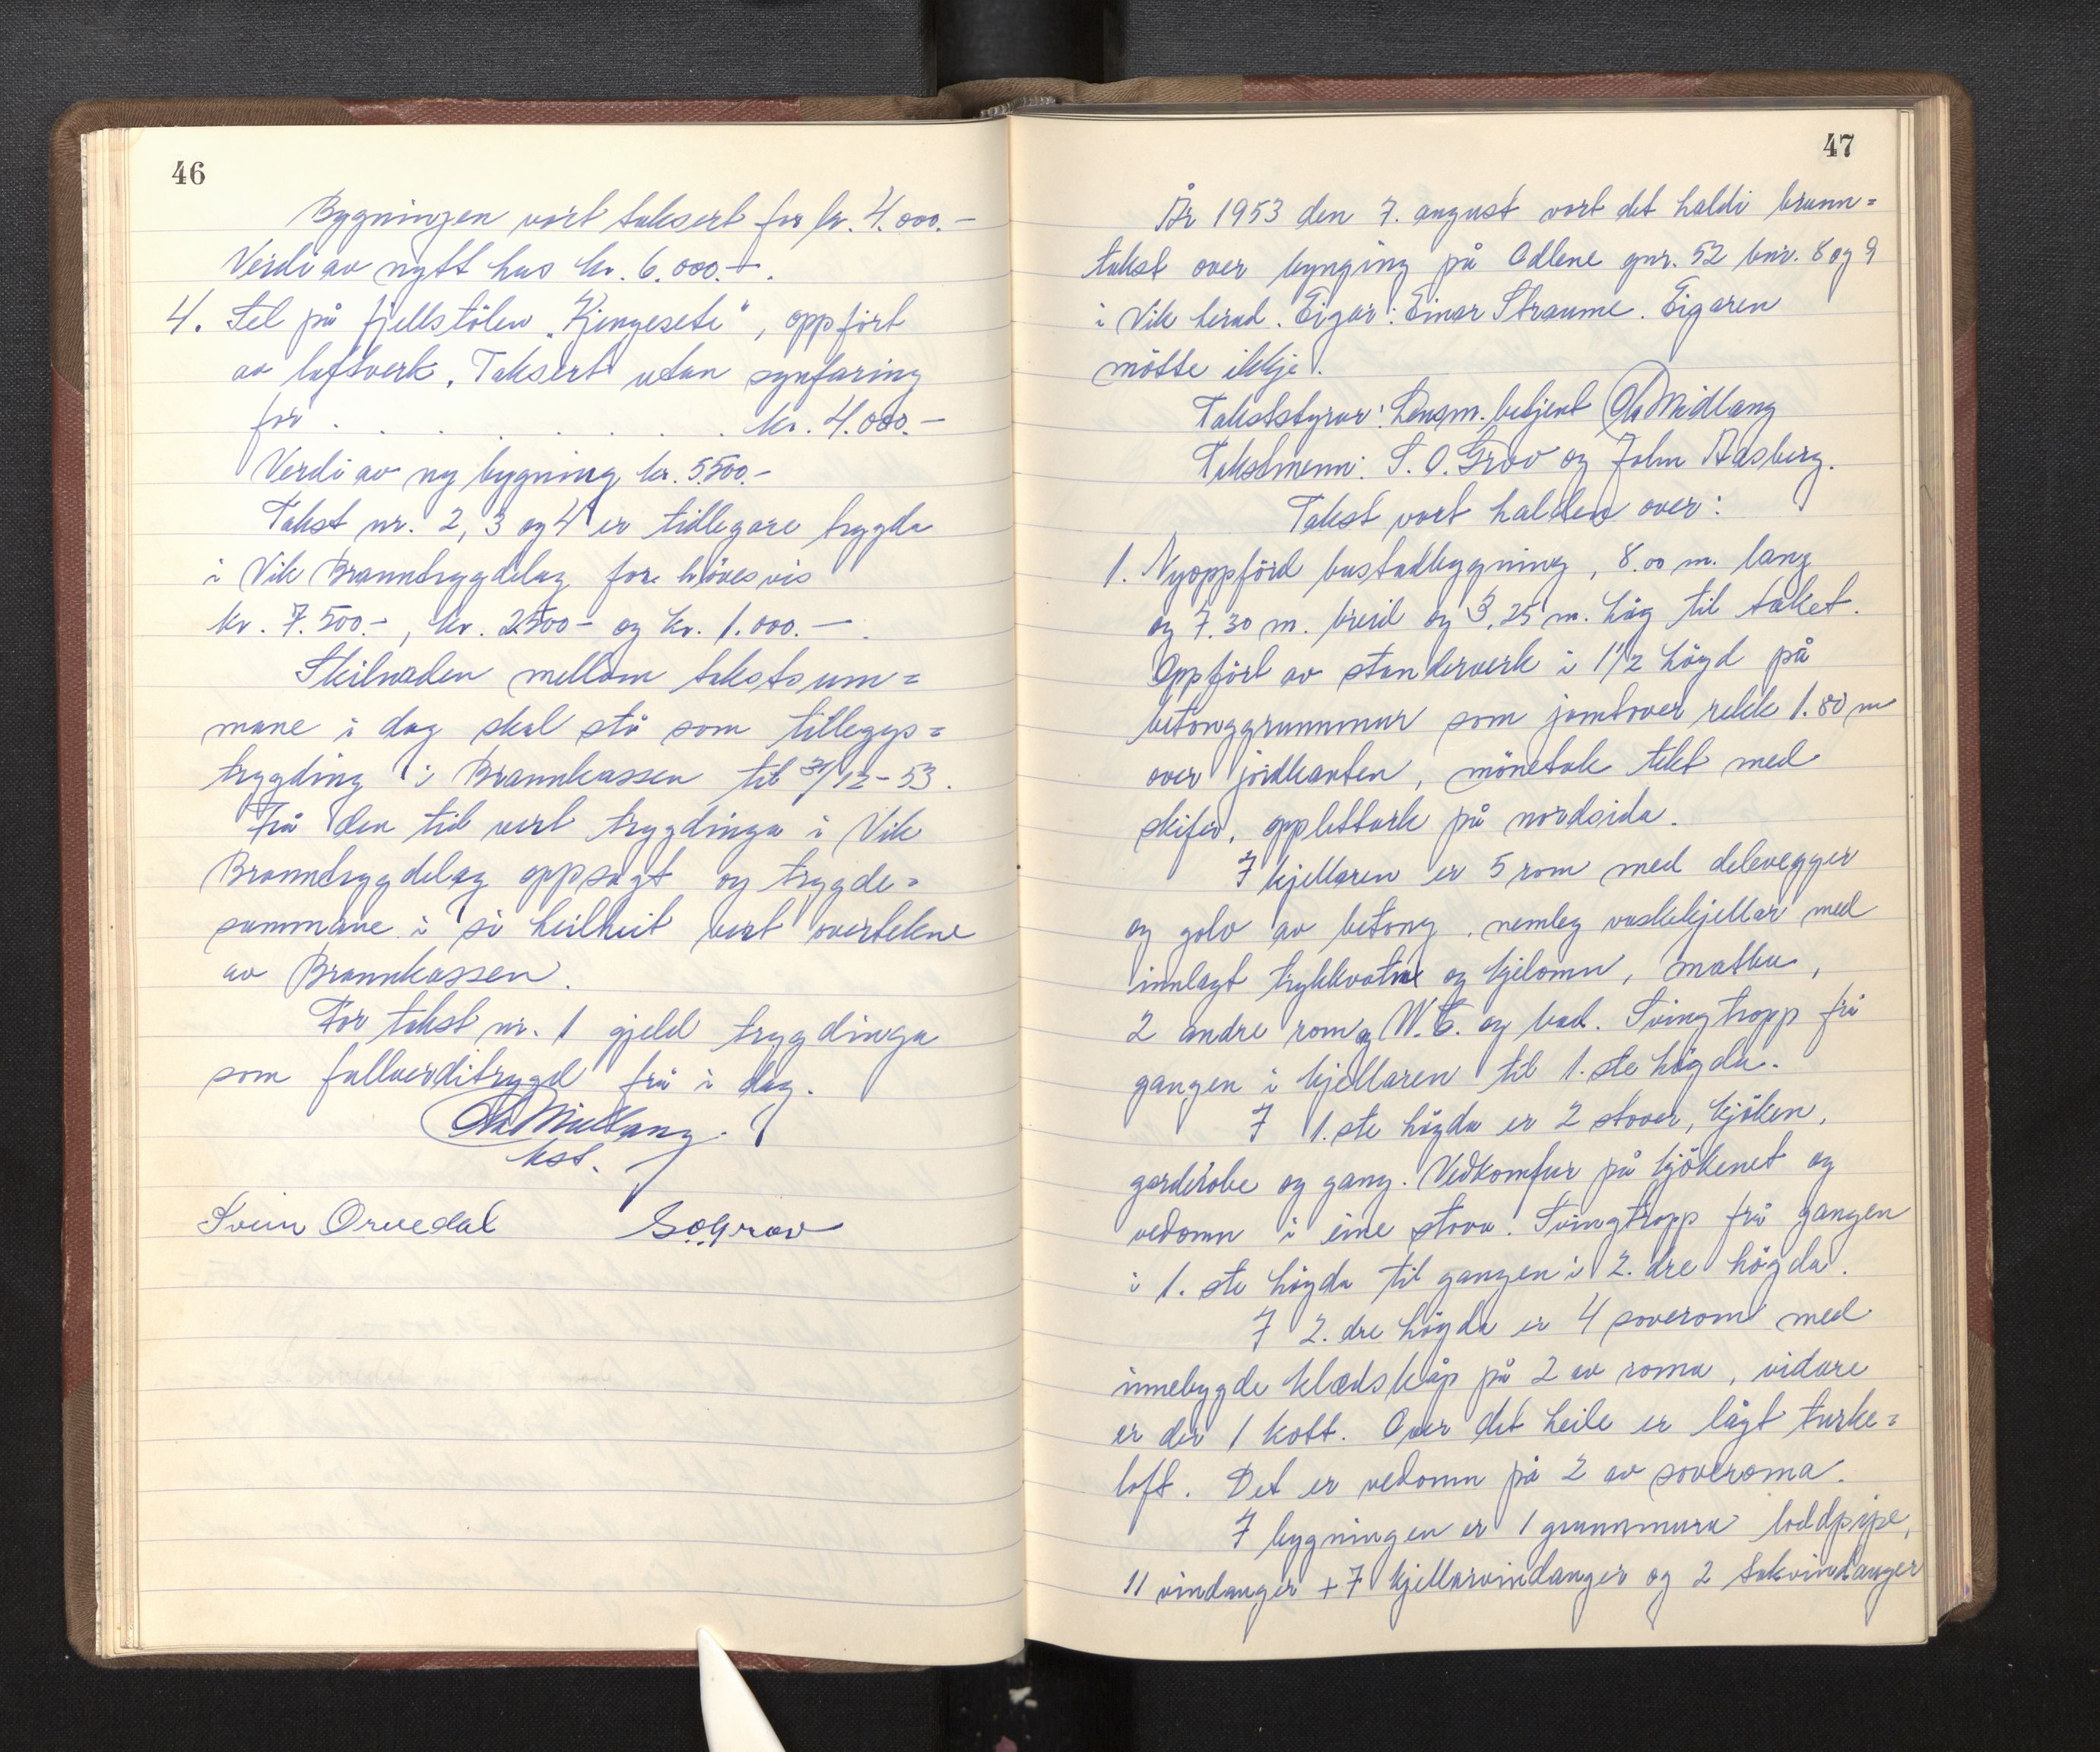 46
Bygningen vart taksert for kr. 4.000.-
Verdi av nytt hus kr. 6.000.-.
4. Sel på fjellstölen „Kjengesete", oppfört
av laftverk. Taksert utan synfaring
for . . . . . . . . . kr. 4.000.-
Verdi av ny bygning kr. 5.500.-
Takst nr. 2, 3 og 4 er tidlegare trygda
i Vik Branntrygdelag for höves vis
kr. 7.500.-, kr. 2500- og kr. 1.000.-.
Skilnaden mellom takstsum=
mane i dag skal stå som tilleggs=
trygding i Brannkassen til 31/12-53.
Frå den tid vert trygdinga i Vik
Branntrygdelag oppsagt og trygde=
summane i si heilheit vert overtekne
av Brannkassen.
For takst nr. 1 gjeld trygdinga
som fullverditrygd frå i dag.
Ol. Midlang.
kst.
Svein Orvedal S.O.Grov
47
År 1953 den 7. august vart det haldi brann=
takst over bynging på Odlene gnr. 52 bnr. 8 og 9
i Vik herad. Eigar: Einar Straume. Eigaren
mötte ikkje.
Takststyrar: Lensm.betjent Ol. Midlang
Takstmenn: S. O. Grov og John Aasberg.
Takst vart halden over:
1. Nyoppförd bustadbygning, 8.00 m. lang
og 7.30 m. breid og 3,25 m. håg til taket.
Oppfört av stenderverk i 1 1/2 högd på
betonggrunnmur som jamtover rekk 1.80 m
over jordkanten, mönetak tekt med
skifer, opplettark på nordsida.
I kjellaren er 5 rom med delevegger
og golv av betong, nemleg vaskekjellar med
innlagt trykkvatn og kjelomn, matbu,
2 andre rom og W.C. og bad. Svingtropp frå
gangen i kjellaren til 1.ste högda.
I 1.ste högda er 2 stover, kjöken,
garderobe og gang. Vedkomfur på kjökenet og
vedomn i eine stova. Svingtropp frå gangen
i 1. ste högda til gangen i 2. dre högda.
I 2. dre högda er 4 soverom med
innebygde klædskåp på 2 av roma, vidare
er der 1 kott. Over det heile er lågt turke=
loft. Det er vedomn på 2 av soveroma.
I bygningen er 1 grunnmura loddpipe,
11 vindauger + 7 kjellarvindauger og 2 takvindauger